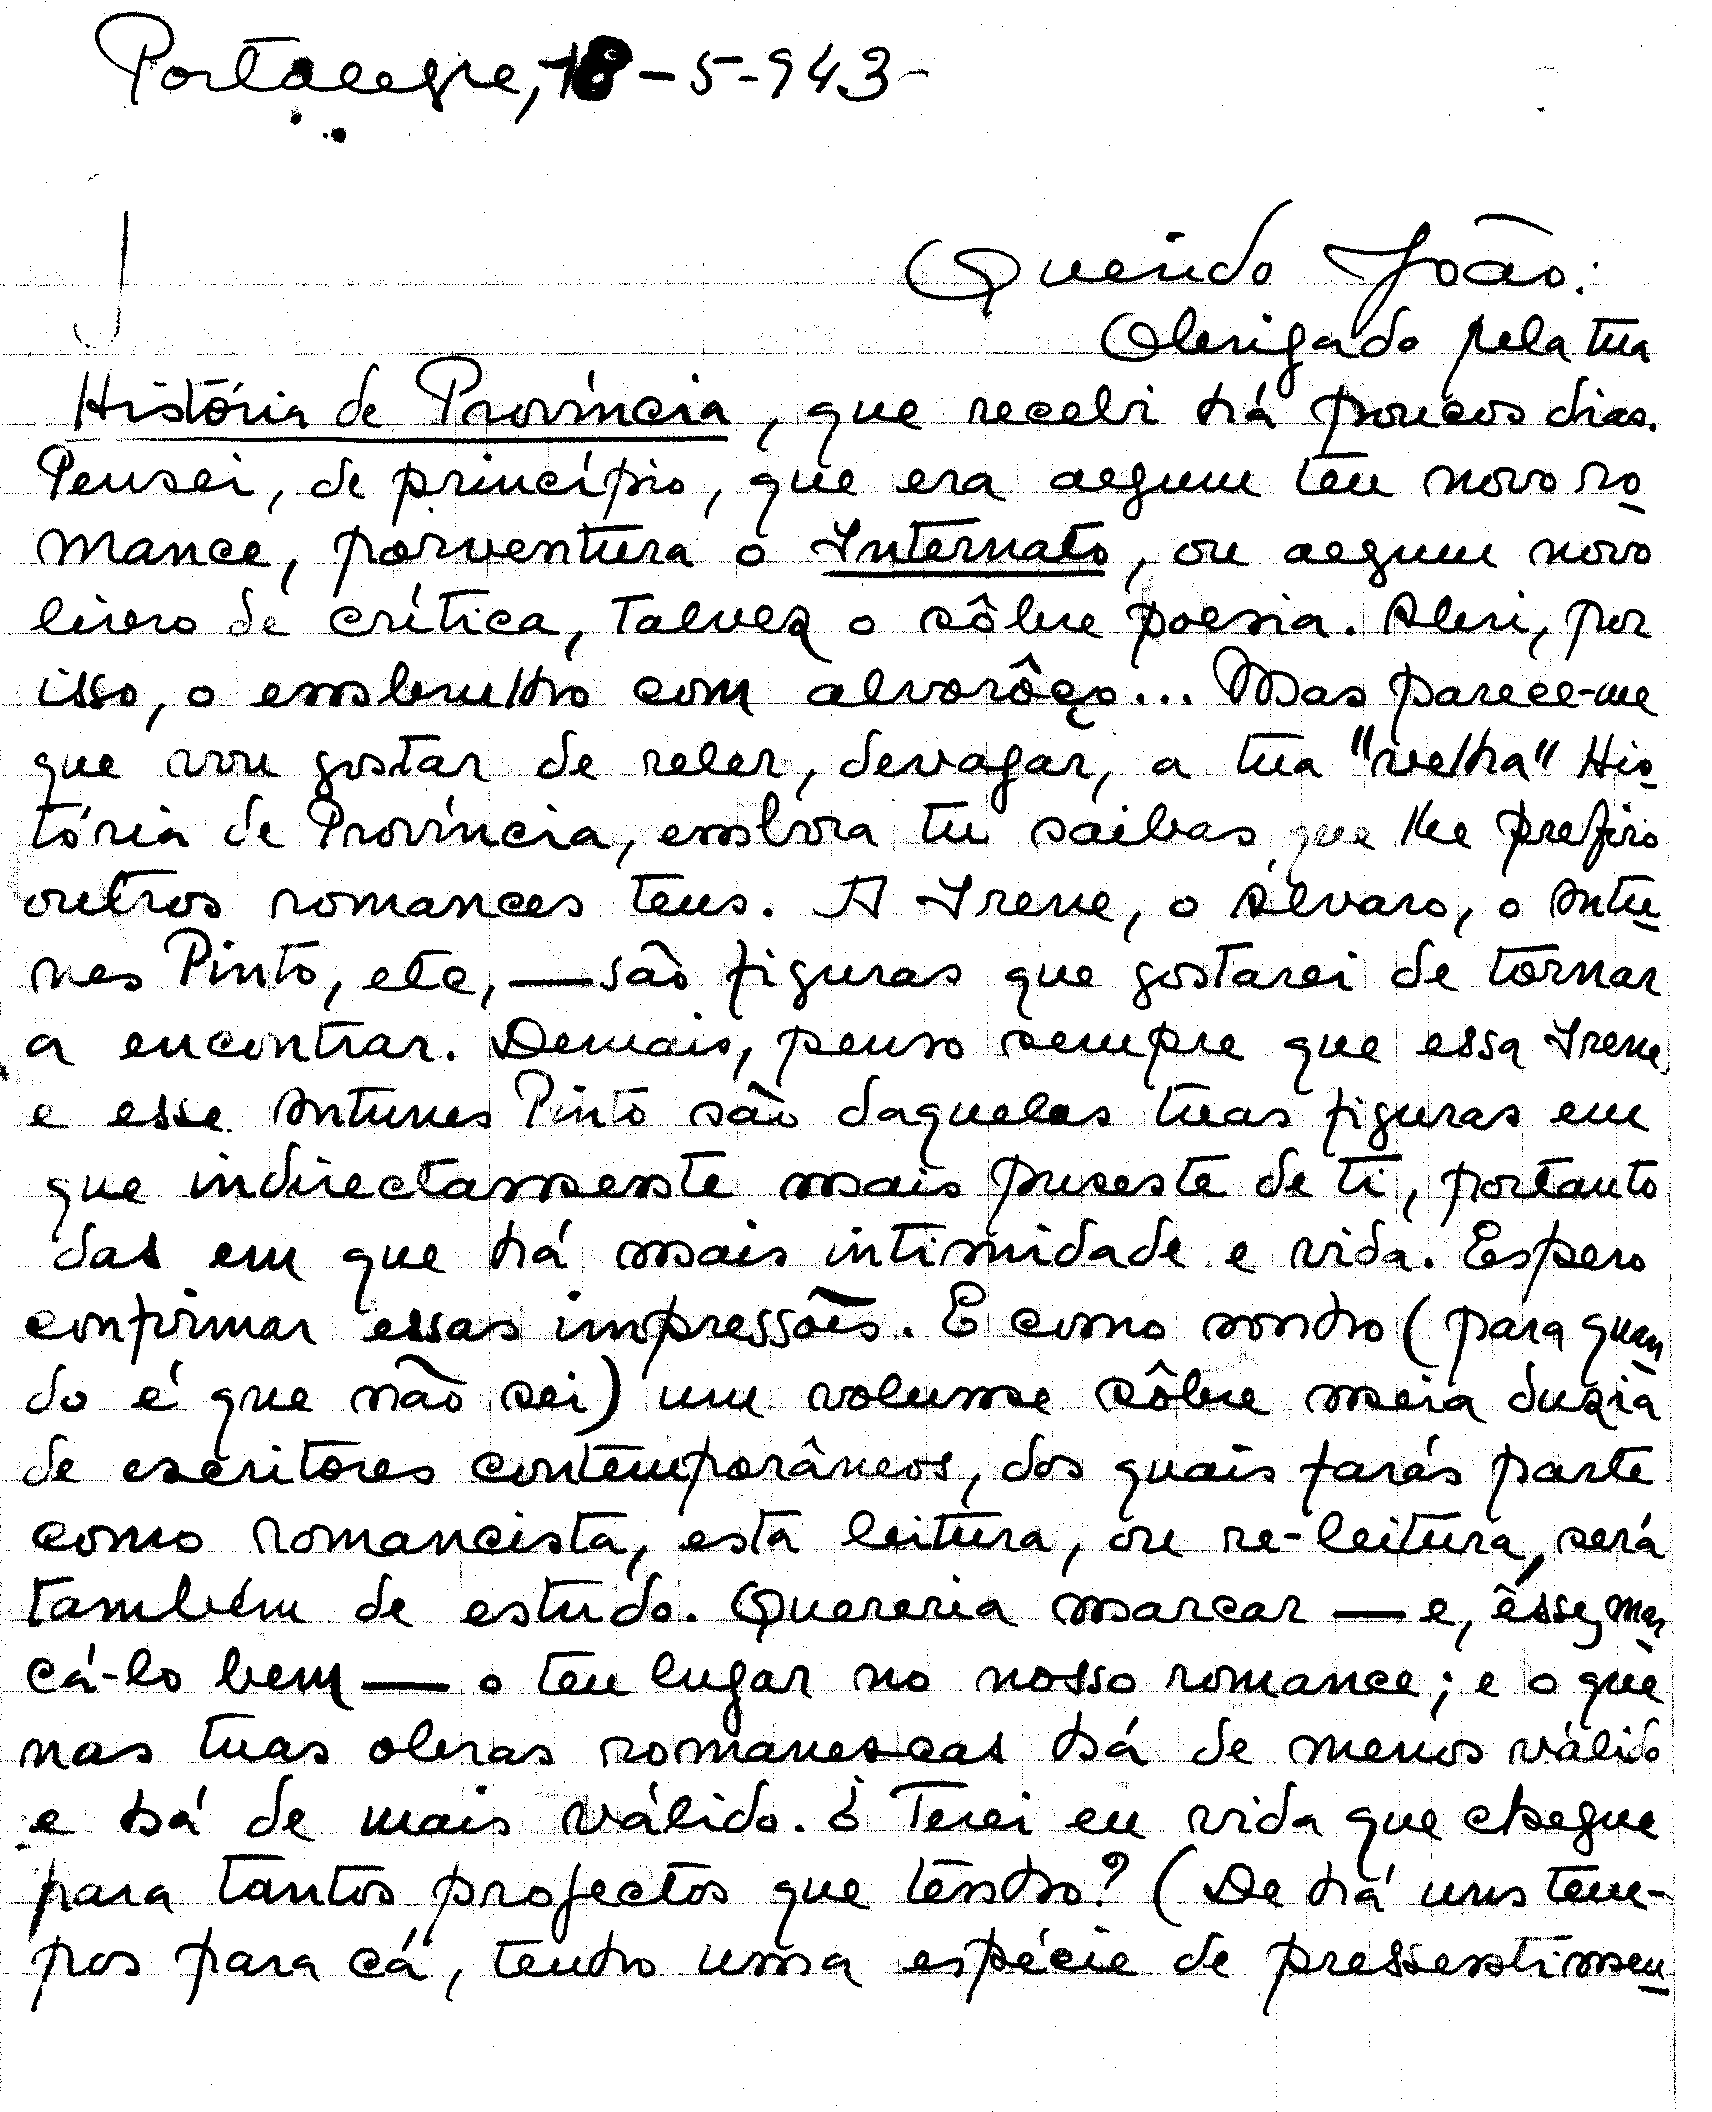 Portalegre, 18-5-943-
Querido João:
Obrigado pela tua
História de Província, que recebi há poucos dias.
Pensei, de princípio, que era algum teu novo ro-
mance, porventura o Internato, ou algum novo
livro de crítica, talvez o sôbre poesia. Abri, por
isso, o embrulho com alvorôço... Mas parece-me
que vou gostar de reler, devagar, a tua "velha" His-
tória de Província, embora tu saibas que lhe prefiro
outros romances teus. A Irene, o Álvaro, o Antu-
nes Pinto, etc, — são figuras que gostarei de tornar
a encontrar. Demais, penso sempre que essa Irene
e esse Antunes Pinto são daquelas tuas figuras em
que indirectamente mais puseste de ti, portanto
das em que há mais intimidade e vida. Espero
confirmar essas impressões. E como sonho (para quan-
do é que não sei) um volume sôbre meia duzia
de escritores contemporâneos, dos quais farás parte
como romancista, esta leitura, ou re-leitura, será
também de estudo. Quereria marcar — e, êsse, mar-
cá-lo bem — o teu lugar no nosso romance; e o que
nas tuas obras romanescas há de menos válido
e há de mais válido. ¿ Terei eu vida que chegue
para tantos projectos que tenho? (De há uns tem-
pos para cá, tenho uma espécie de pressentimen-